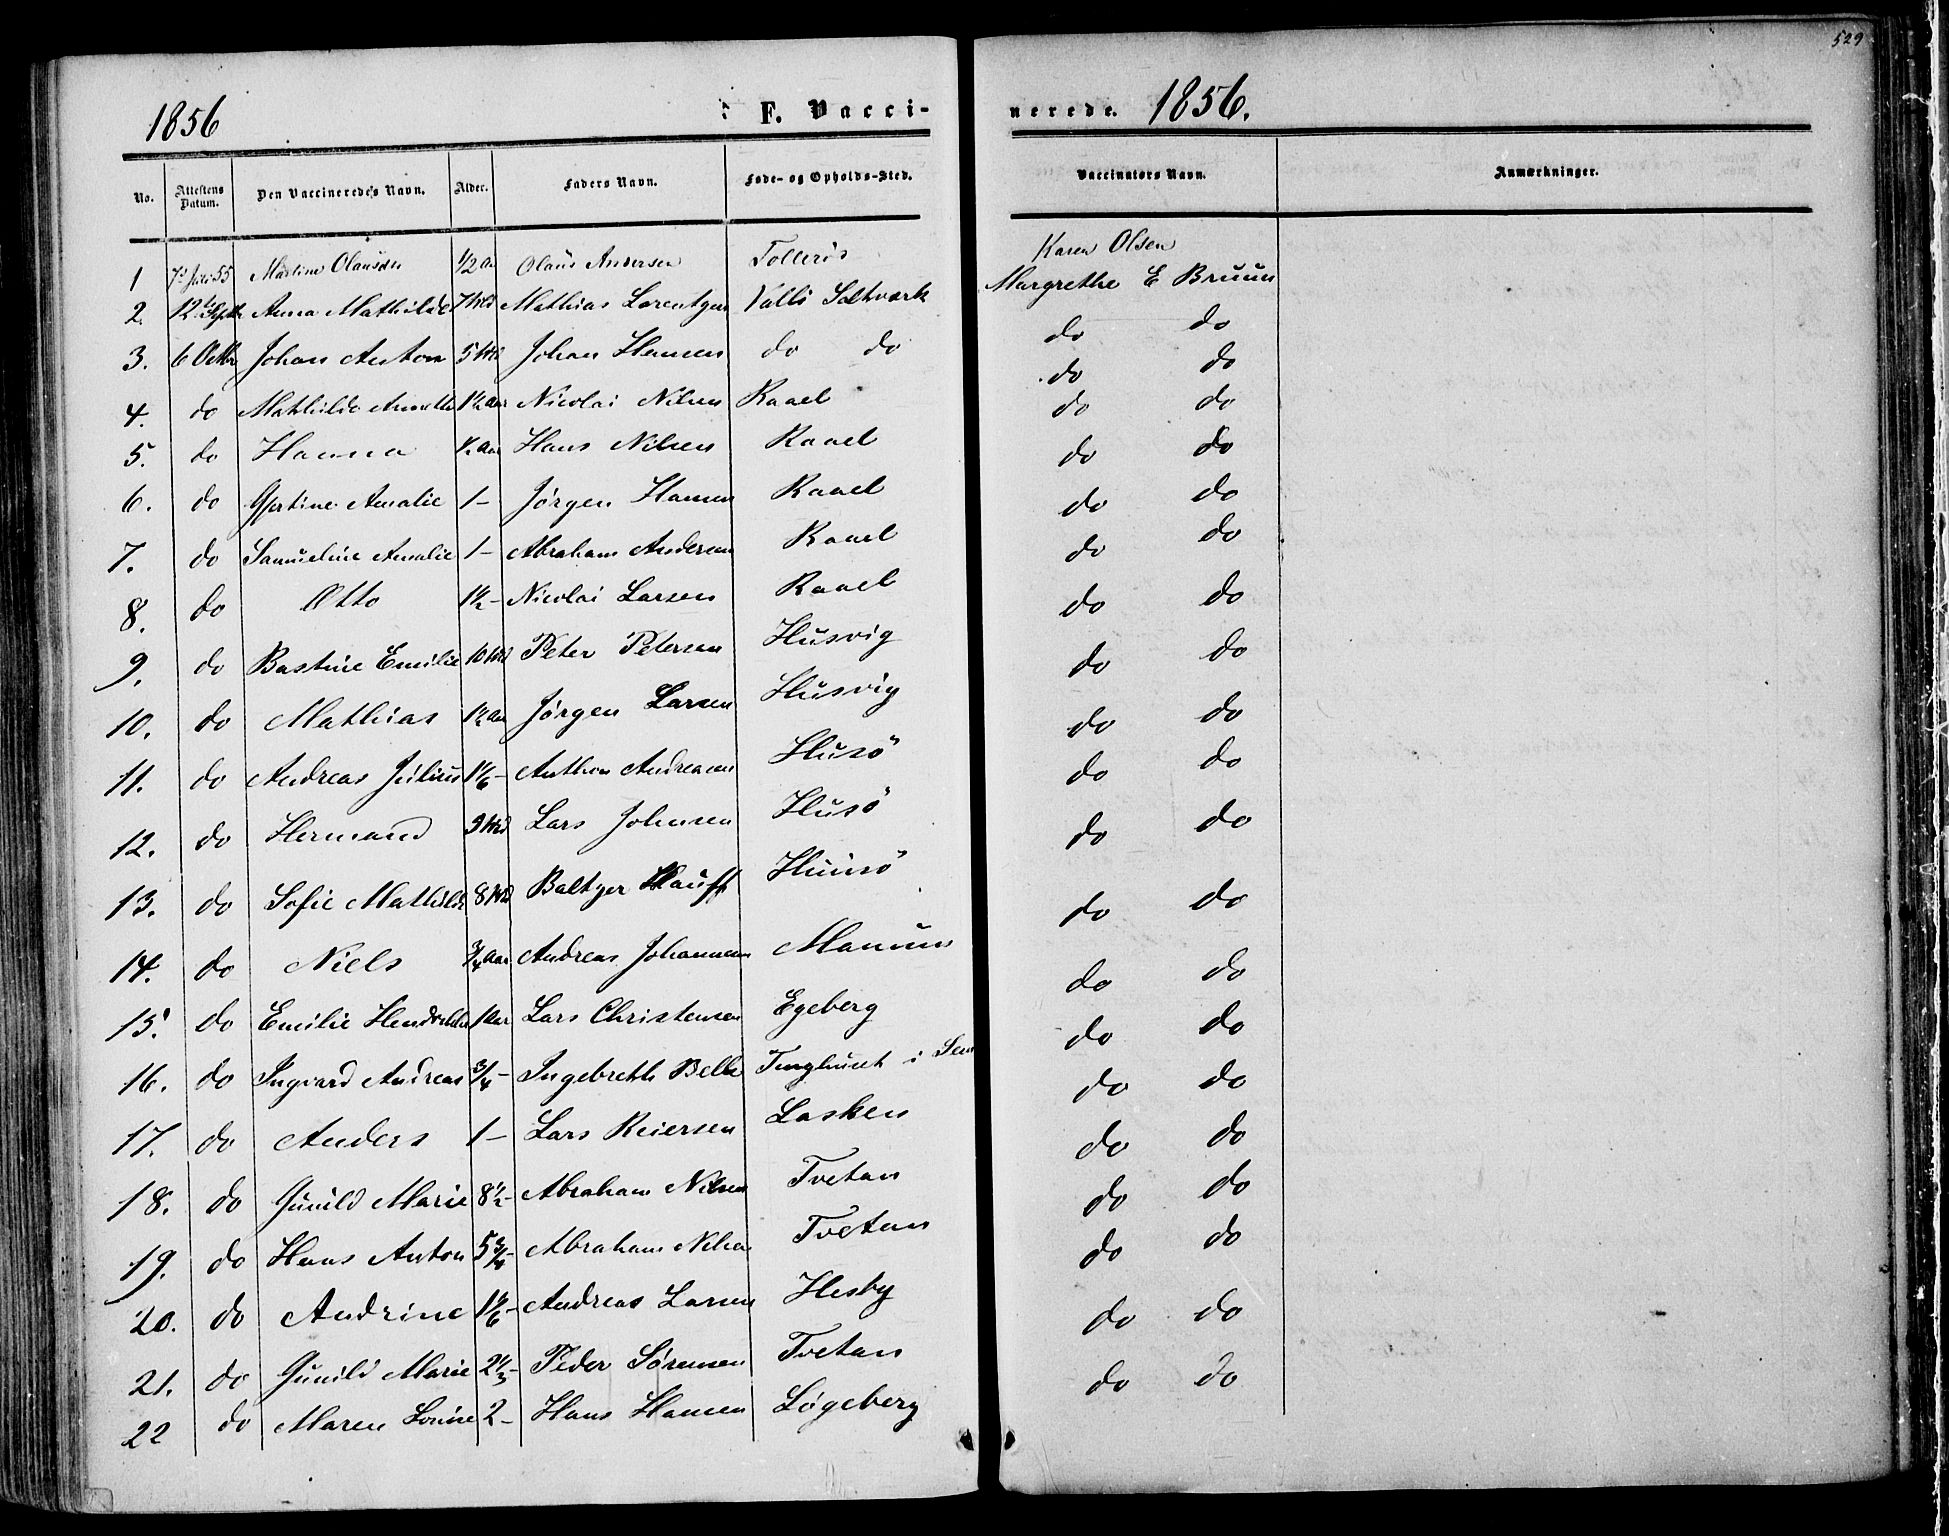 529
1856 F. Vacci- nerede. 1856.
No. Attestens Datum. Den Vaccineredes Navn. Alder. Faders Navn. Føde- og Opholds-Sted. Vaccinators Navn. Anmærkninger.
1 7de Juli 55 Martine Olausdtr 1/2 Aar Olaus Andersen Tollerös Karen Olsen
2. 12te Septb Anna Mathilde 7 Md Mathias Lorentzen Vallö Saltværk Margrethe E Bruun
3. 6 Octbr Johan Anton 5 Md Johan Hansen do do do do
4. do Mathilde 1 1/2 Aar Nicolai Nilsen Raael do do
5. do Hanna 1/2 Aar Hans Nilsen Raael do do
6. do Gjertine Amalie 1 – Jørgen Hansen Raael do do
7. do Samueline Amalie 1 – Abraham Andersen Raael do do
8. do Otto 1 1/2 – Nicolai Larsen Raael do do
9. do Bastine Emilie 10 Md Peter Petersen Husvig do do
10. do Mathias 1 1/2 Aar Jørgen Larsen Husvig do do
11. do Andreas Julius 1 1/6 – Anthon Andreasen Husö do do
12. do Hermand 9 Md Lars Johnsen Husö do do
13. do Sofie Mathilde 8 Md Baltzer Hauff Huusö do do
14. do Niels 3/4 Aar Andreas Johannesen do do
15. do Emilie 1 Aar Lars Christensen Egeberg do do
16. do Ingvard Andreas 3/4 – Ingebreth Belle Tinghuset i Sem do do
17. do Anders 1 – Lars Reiersen Lasken do do
18. do Gunild Marie 8 1/2 – Abraham Nilsen Tvetan do do
19. do Hans Anton 5 3/4 – Abraham Nilsen Tvetan do do
20. do Andrine 1 1/6 – Andreas Larsen Hesby do do
21. do Gunild Marie 2 1/3 – Peder Sørensen Tvetan do do
22 do Maren Lovise 2 – Hans Hansen Løgeberg do do